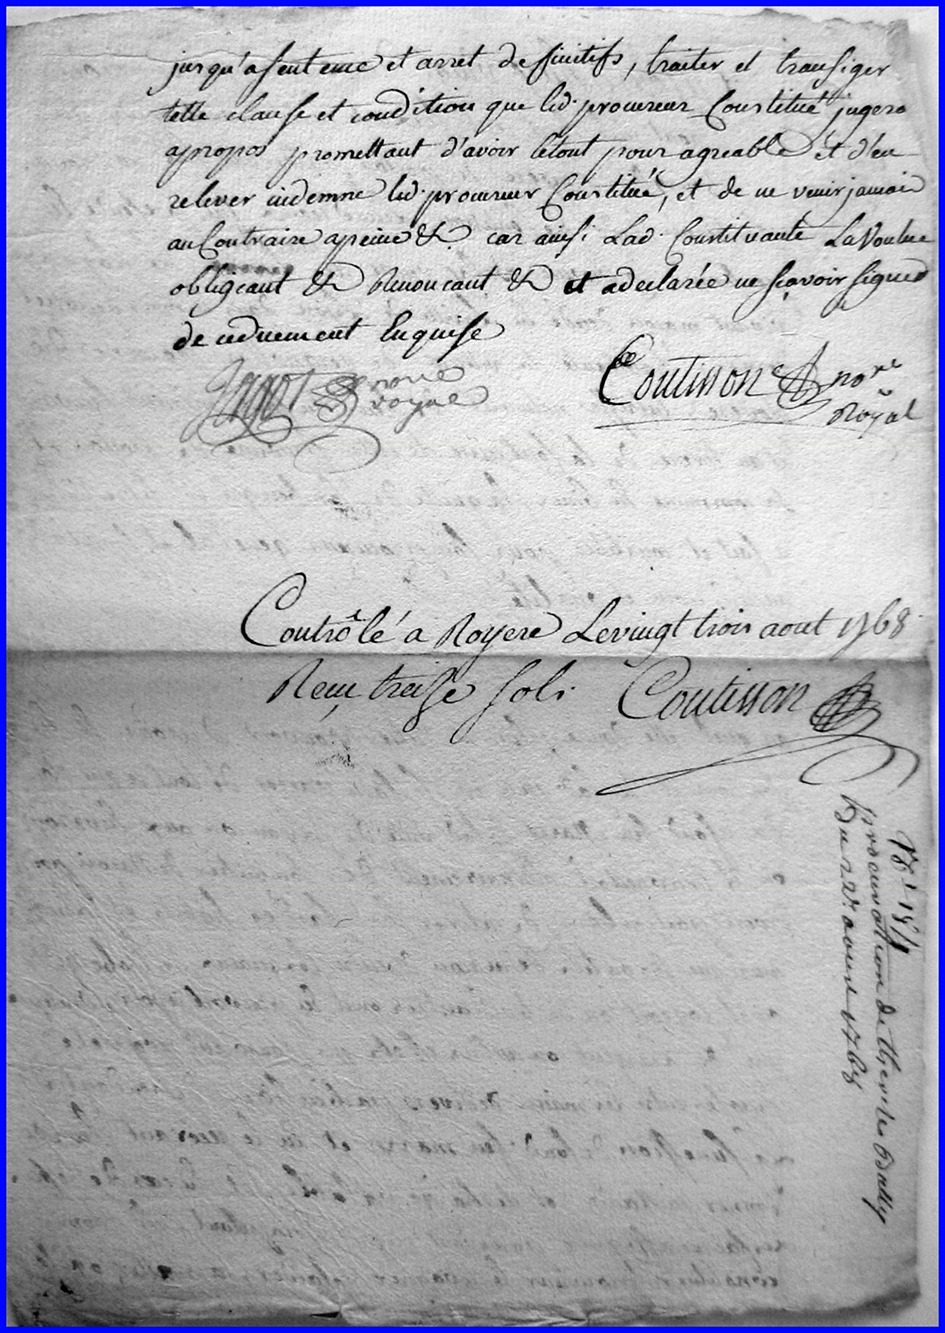 jusqu'a sentence et arret definitifs, traiter et transiger
telle clause et condition que led. procureur Constitué jugera
apropos promettant d'avoir letout pour agreable et d'en
relever indemne led. procureur Constitué, et de ne venir jamais
au Contraire apeine &c car ainsi Lad. Constituante La Voulue
obligeant &c Renoncant &c et adeclarée ne scavoir signer
de ce duement Enquise
Coutisson nore
Royal
Jagot nore
royal
Controlé a Royere Levingt trois aout 1768
Recu treise sols Coutisson
procuration de therese
du 22e aoust 1768